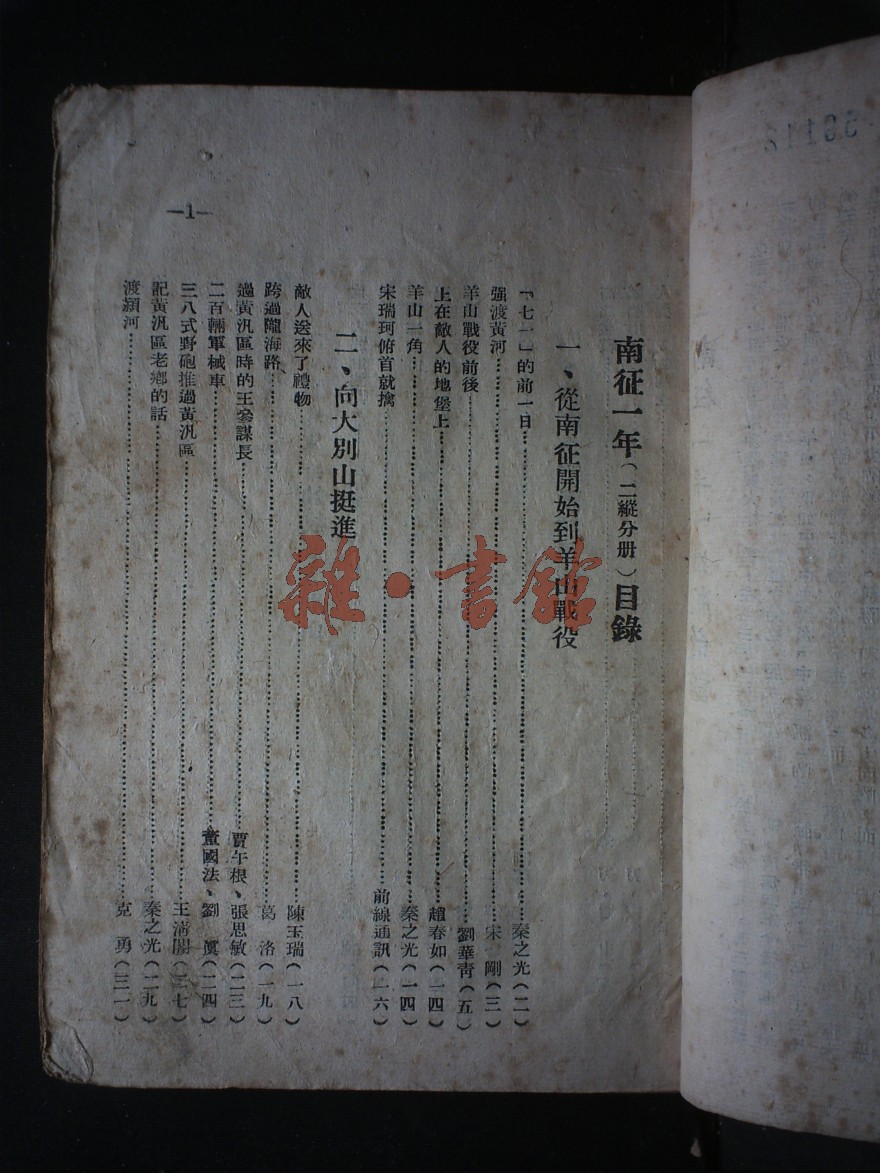 南征一年（二縱分册）目錄
一、從南征開始到羊山戰役
「七一」的前一日……秦之光（二）
强渡黃河……宋　剛（三）
羊山戰役前後……劉華靑（五）
上在敵人的地堡上……趙春如（一四）
羊山一角……秦之光（一四）
宋瑞珂俯首就擒……前線通訊（一六）
二、向大別山挺進
敵人送來了禮物……陳玉瑞（一八）
跨過隴海路……葛　洛（一九）
過黃汎區時的王參謀長……賈午根、張思敏（二三）
二百輛軍械車……董國法、劉　眞（二四）
三八式野砲推過黃汎區……王淸閣（二七）
記黃汎區老鄉的話……秦之光（二九）
渡潁河……克　勇（三一）
—1—
雜·書館